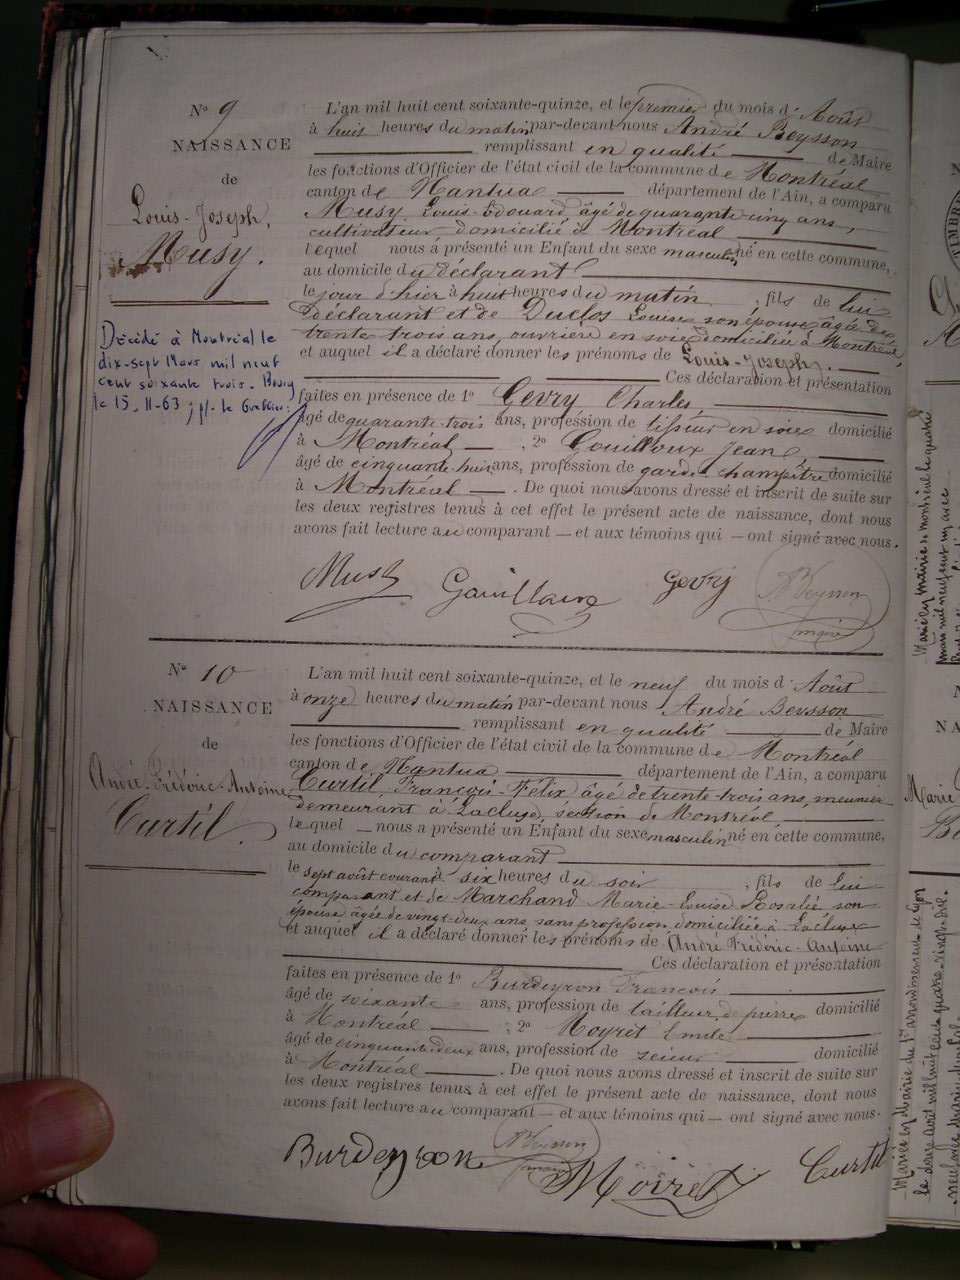 N° 9
NAISSANCE
de
Louis-Joseph,
Musy.
Décédé à Montréal le
dix-sept Mars mil neuf
cent soixante trois. Bourg
le 15.11-63 ; p/. le Greffier:
L'an mil huit cent soixante-quinze, et le premier du mois d'Août
à huit heures du matin par-devant nous André Beysson
remplissant en qualité de Maire
les fonctions d'Officier de l'état civil de la commune de Montréal
canton de Nantua département de l'Ain, a comparu
Musy Louis-Edouard, âgé de quarante cinq ans,
cultivateur, domicilié à Montréal
lequel nous a présenté un Enfant du sexe masculin né en cette commune,
au domicile du déclarant
le jour d'hier à huit heures du matin, fils de lui
déclarant et de Duclos Louise son épouse, âgée de
trente trois ans, ouvrière en soie, domiciliée à Montréal,
et auquel il a déclaré donner les prénoms de Louis-Joseph.
Ces déclaration et présentation
faites en présence de 1° Gevry Charles,
âgé de quarante-trois ans, profession de tisseur en soie domicilié
à Montréal, 2° Gouilloux Jean,
âgé de cinquante-huit ans, profession de garde champêtre domicilié
à Montréal. De quoi nous avons dressé et inscrit de suite sur
les deux registres tenus à cet effet le présent acte de naissance, dont nous
avons fait lecture au comparant — et aux témoins qui — ont signé avec nous.
Musy Gevry A Beysson
maire
N° 10
NAISSANCE
de
André-Frédéric-Antoine
Curtil.
L'an mil huit cent soixante-quinze, et le neuf du mois d'Août
à onze heures du matin par-devant nous André Beysson
remplissant en qualité de Maire
les fonctions d'Officier de l'état civil de la commune de Montréal
canton de Nantua département de l'Ain, a comparu
Curtil, François-Félix âgé de trente-trois ans, meunier
demeurant à Lacluse, section de Montréal
lequel — nous a présenté un Enfant du sexe masculin né en cette commune,
au domicile du comparant
le sept août courant à six heures du soir, fils de lui
comparant et de Marchand Marie-Louise Rosalie son
épouse âgée de vingt-deux ans, sans profession, domiciliée à Lacluse
et auquel il a déclaré donner les prénoms de André Frédéric-Antoine
Ces déclaration et présentation
faites en présence de 1° Burdeyron François
âgé de soixante ans, profession de tailleur de pierres domicilié
à Montréal ; 2° Moyret Emile
âgé de cinquante deux ans, profession de scieur domicilié
à Montréal. De quoi nous avons dressé et inscrit de suite sur
les deux registres tenus à cet effet le présent acte de naissance, dont nous
avons fait lecture au comparant — et aux témoins qui — ont signé avec nous.
Burdeyron A Beysson
maire
Moiret Curtil